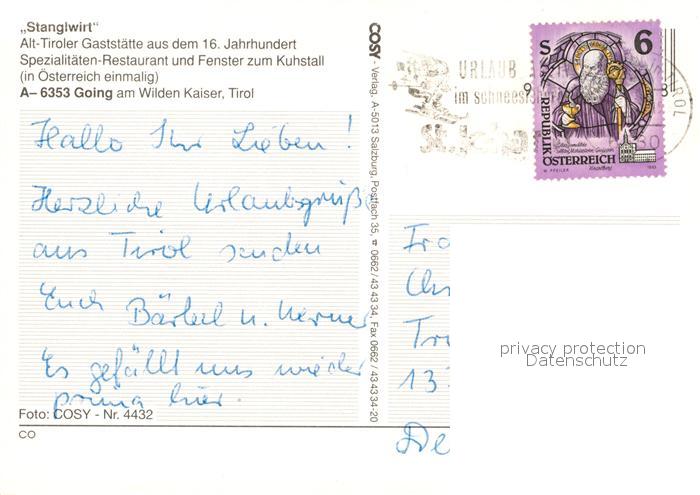 „Stanglwirt“
Alt-Tiroler Gaststätte aus dem 16. Jahrhundert
Spezialitäten-Restaurant und Fenster zum Kuhstall
(in Österreich einmalig)
A– 6353 Going am Wilden Kaiser, Tirol
Hallo Ihr Lieben!
Herzliche Urlaubsgrüße
aus Tirol senden
Euch Bärbel u. Werner
Es gefällt uns wieder
prima hier.
Foto: COSY - Nr. 4432
CO
COSY - Verlag, A-5013 Salzburg, Postfach 35, ☎ 0662/43 43 34, Fax 0662/43 43 34-20
URLAUB
im schneesi
St. Joha
TIROL
S 6
REPUBLIK
ÖSTERREICH
W. PFEILER
1993
Fra
Chr
Tri
13
De
privacy protection
Datenschutz